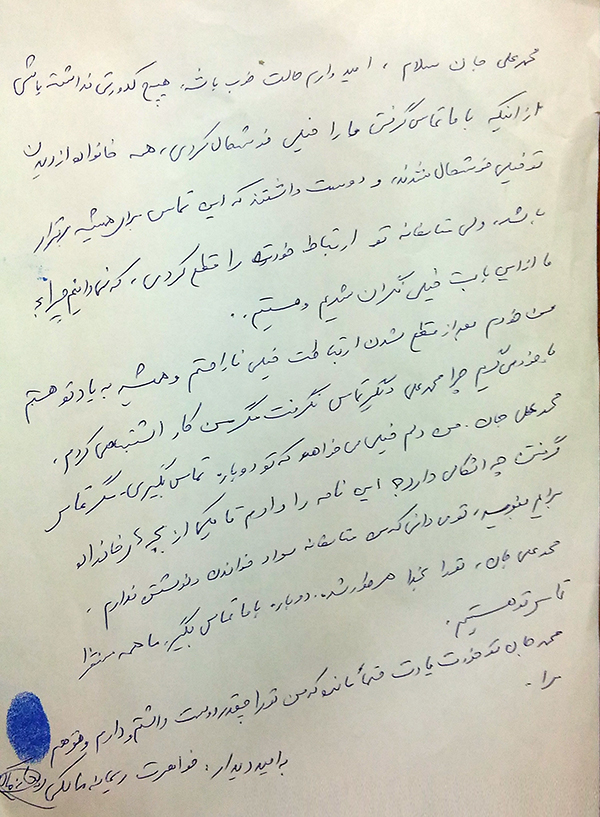 محمدعلی جان سلام ، امیدوارم حالت خوب باشه. هیچ کدورتی نداشته باشی
از اینکه با ما تماس گرفتی ما را خیلی خوشحال کردی، همه خانواده از دیدن
تو خیلی خوشحال شدند، و دوست داشتند که این تماس برای همیشه برقرار
باشد. ولی متاسفانه تو ارتباط خودت را قطع کردی ، که نمیدانیم چرا؟
ما از این بابت خیلی نگران شدیم و هستیم..
من خودم بعد از قطع شدن ارتباطت خیلی ناراحتم و همیشه به یاد تو هستم
با خودم میگویم چرا محمدعلی دیگر تماس نگرفت مگر من کار اشتباهی کردم،
محمدعلی جان. من دلم خیلی می خواهد که تو دوباره تماس بگیری. مگر تماس
گرفتن چه اشکالی دارد؟ این نامه را دادم تا یکی از بچه های خانواده
برایم بنویسد، تو می دانی که من متاسفانه سواد خواندن و نوشتن ندارم.
محمدعلی جان، تو را بخدا هر طور شده. دوباره با ما تماس بگیر. ما همه منتظر
تماس تو هستیم.
محمد جان تو خودت یادت حتماً مانده که من تو را چقدر دوست داشتم و دارم و تو هم
مرا.
به امید دیدار: خواهرت ریحانه مالکی